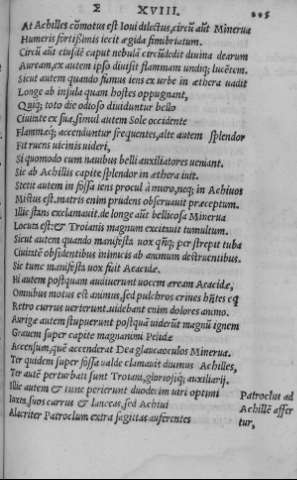 Σ XVIII. 205
At Achilles cōmotus est Ioui dilectus, circū aūt Minerua
Humeris fortissimis iecit ægida fimbriatam.
Circū aūt eiusdē caput nebulā circūdedit diuina dearum
Auream, ex autem ipso diuisit flammam undiq; lucētem.
Sicut autem quando fumus iens ex urbe in æthera uadit
Longe ab insula quam hostes oppugnant,
Quiq; toto die odioso diuiduntur bello
Ciuitate ex sua, simul autem Sole occidente
Flammæq; accenduntur frequentes, alte autem splendor
Fit ruens uicinis uideri,
Si quomodo cum nauibus belli auxiliatores ueniant.
Sic ab Achillis capite splendor in æthera iuit.
Stetit autem in fossa iens procul à muro, neq; in Achiuos
Mistus est. matris enim prudens obseruauit præceptum.
Illic stans exclamauit. de longe aūt bellicosa Minerua
Locuta est: & Troianis magnum excitauit tumultum.
Sicut autem quando manifesta uox qñq; per strepit tuba
Ciuitatē obsidentibus inimicis ab animum destruentibus.
Sic tunc manifesta uox fuit Aeacidæ.
Hi autem postquam audiuerunt uocem æream Aeacidæ,
Omnibus motus est animus, sed pulchros crines hñtes eq
Retro currus uerterunt. uidebant enim dolores animo.
Aurigæ autem stupuerunt postquā uiderūt magnū ignem
Grauem super capite magnanimi Pelidæ
Accensum, quē accenderat Dea glaucaoculos Minerua.
Ter quidem super fossa ualde clamauit diuinus Achilles,
Ter autē perturbati sunt Troiani, gloriosiq; auxiliarij.
Illic autem & tunc perierunt duodecim uiri optimi
Iuxta suos currus & lanceas, sed Achiui
Alacriter Patroclum extra sagittas auferentes
Patroclus ad
Achillē affer
tur,